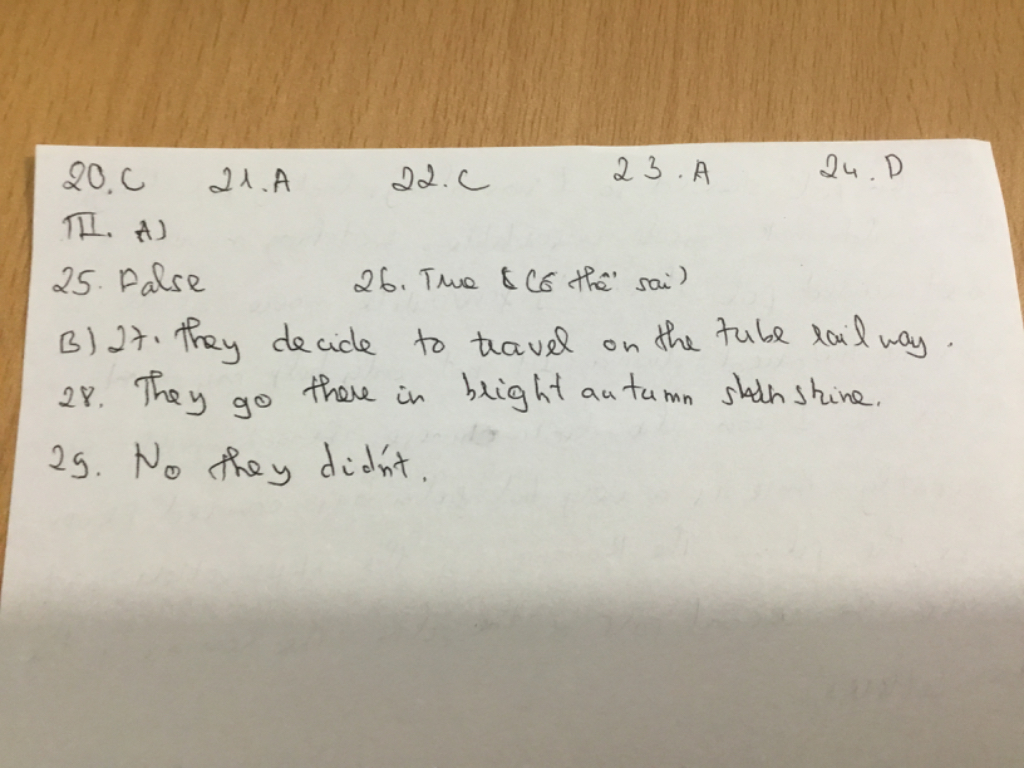 20.C 21.A 22.C 23.A 24.D
III. A)
25. False 26. True (Có thể sai)
B) 27. They decide to travel on the tube railway.
28. They go there in bright autumn shine.
29. No they didn't.